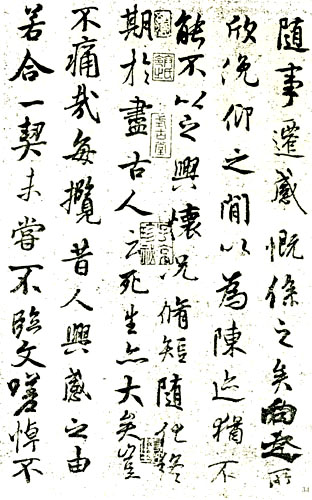 隨事遷感慨係之矣向之所
欣俛仰之閒以為陳迹猶不
能不以之興懷況脩短隨化終
期於盡古人云死生亦大矣豈
不痛哉每攬昔人興感之由
若合一契未嘗不臨文嗟悼不